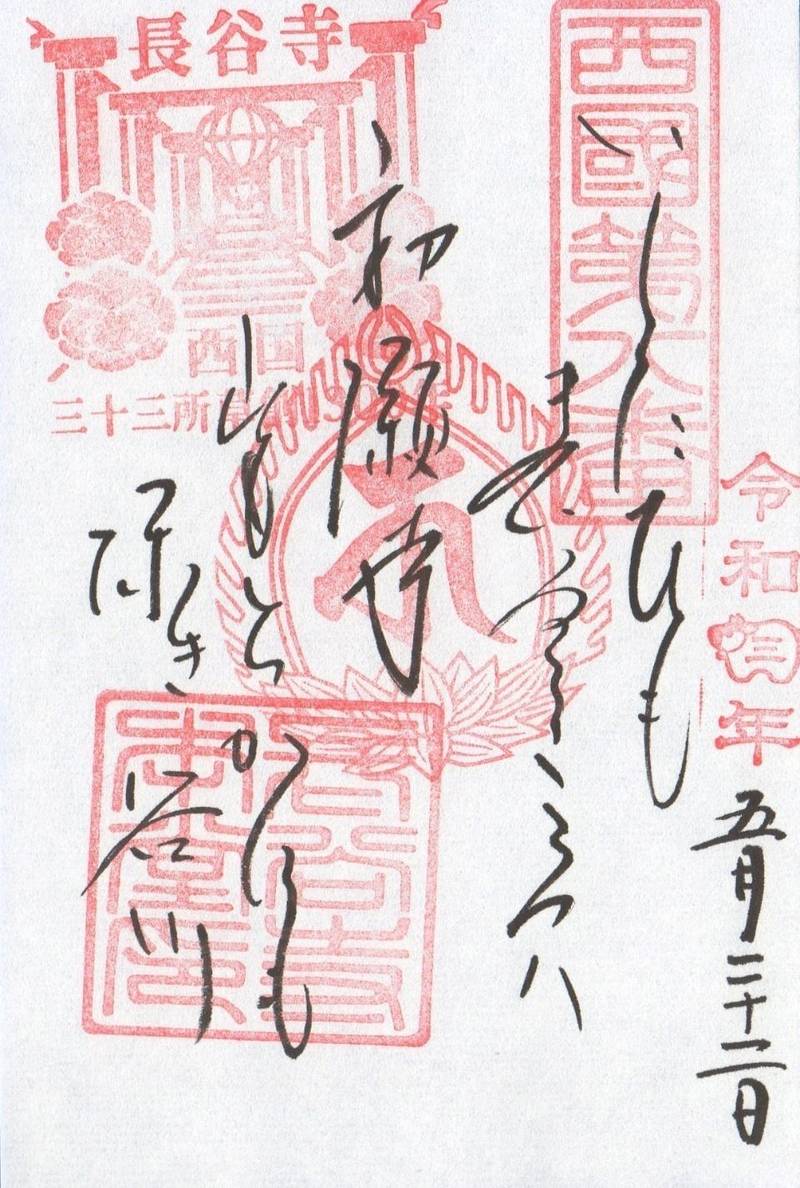 西國第八番
令和四年
五月二十二日
いくたひも
こゝろハ
初瀬寺
山もちかひも
深き谷川
長谷寺
西国
三十三所